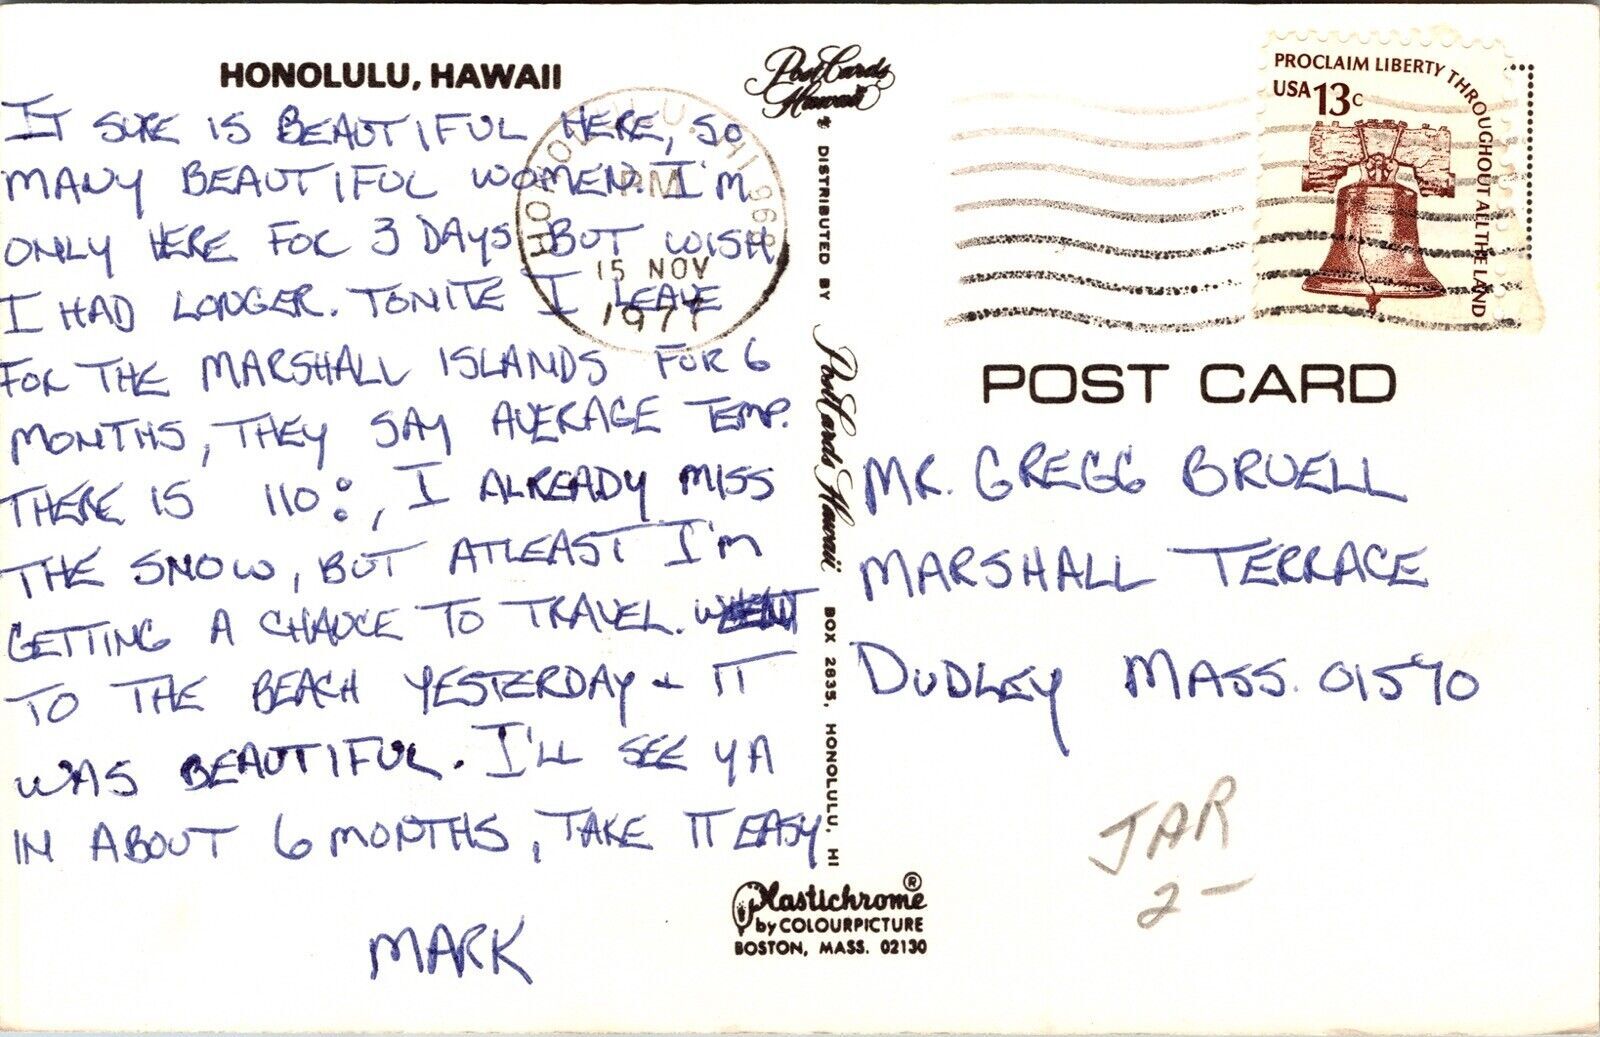 HONOLULU, HAWAII
IT SURE IS BEAUTIFUL HERE, SO
MANY BEAUTIFUL WOMEN. I'M
ONLY HERE FOR 3 DAYS BUT WISH
I HAD LONGER. TONITE I LEAVE
FOR THE MARSHALL ISLANDS FOR 6
MONTHS, THEY SAY AVERAGE TEMP.
THERE IS 110°, I ALREADY MISS
THE SNOW, BUT ATLEAST I'M
GETTING A CHANCE TO TRAVEL. WENT
TO THE BEACH YESTERDAY + IT
WAS BEAUTIFUL. I'LL SEE YA
IN ABOUT 6 MONTHS, TAKE IT EASY
MARK
HONOLULU, HI 968
PM
15 NOV
1977
PostCards
Hawaii
DISTRIBUTED BY PostCards Hawaii BOX 2835, HONOLULU, HI
Plastichrome®
by COLOURPICTURE
BOSTON, MASS. 02130
PROCLAIM LIBERTY THROUGHOUT ALL THE LAND
USA 13c
POST CARD
MR. GREGG BRUELL
MARSHALL TERRACE
DUDLEY MASS. 01570
JAR
2-